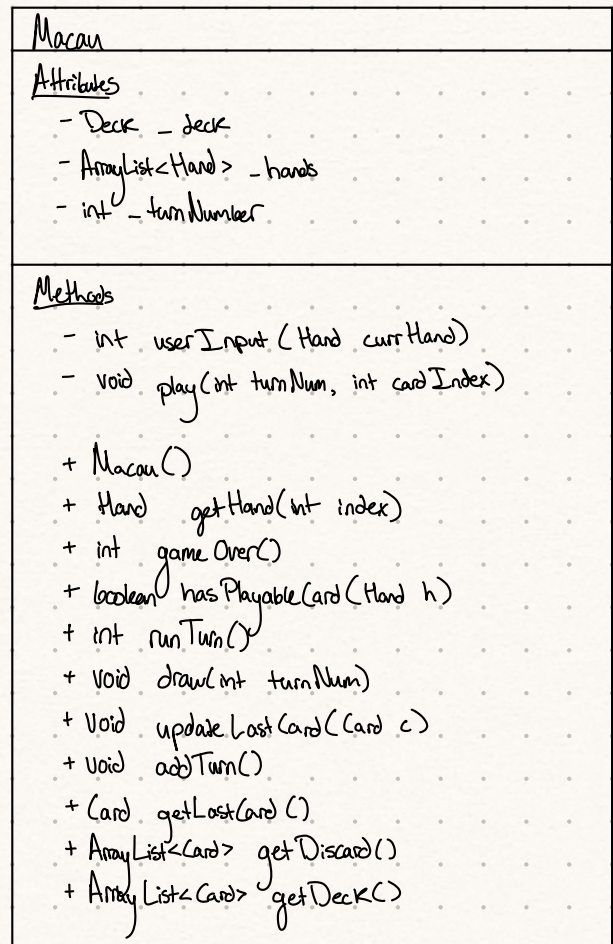 Macau
Attributes
- Deck _deck
- ArrayList<Hand> _hands
- int _turnNumber
Methods
- int userInput (Hand currHand)
- void play(int turnNum, int cardIndex)
+ Macau()
+ Hand getHand(int index)
+ int gameOver()
+ boolean hasPlayableCard(Hand h)
+ int runTurn()
+ void draw(int turnNum)
+ void updateLastCard(Card c)
+ void addTurn()
+ Card getLastCard()
+ ArrayList<Card> getDiscard()
+ ArrayList<Card> getDeck()